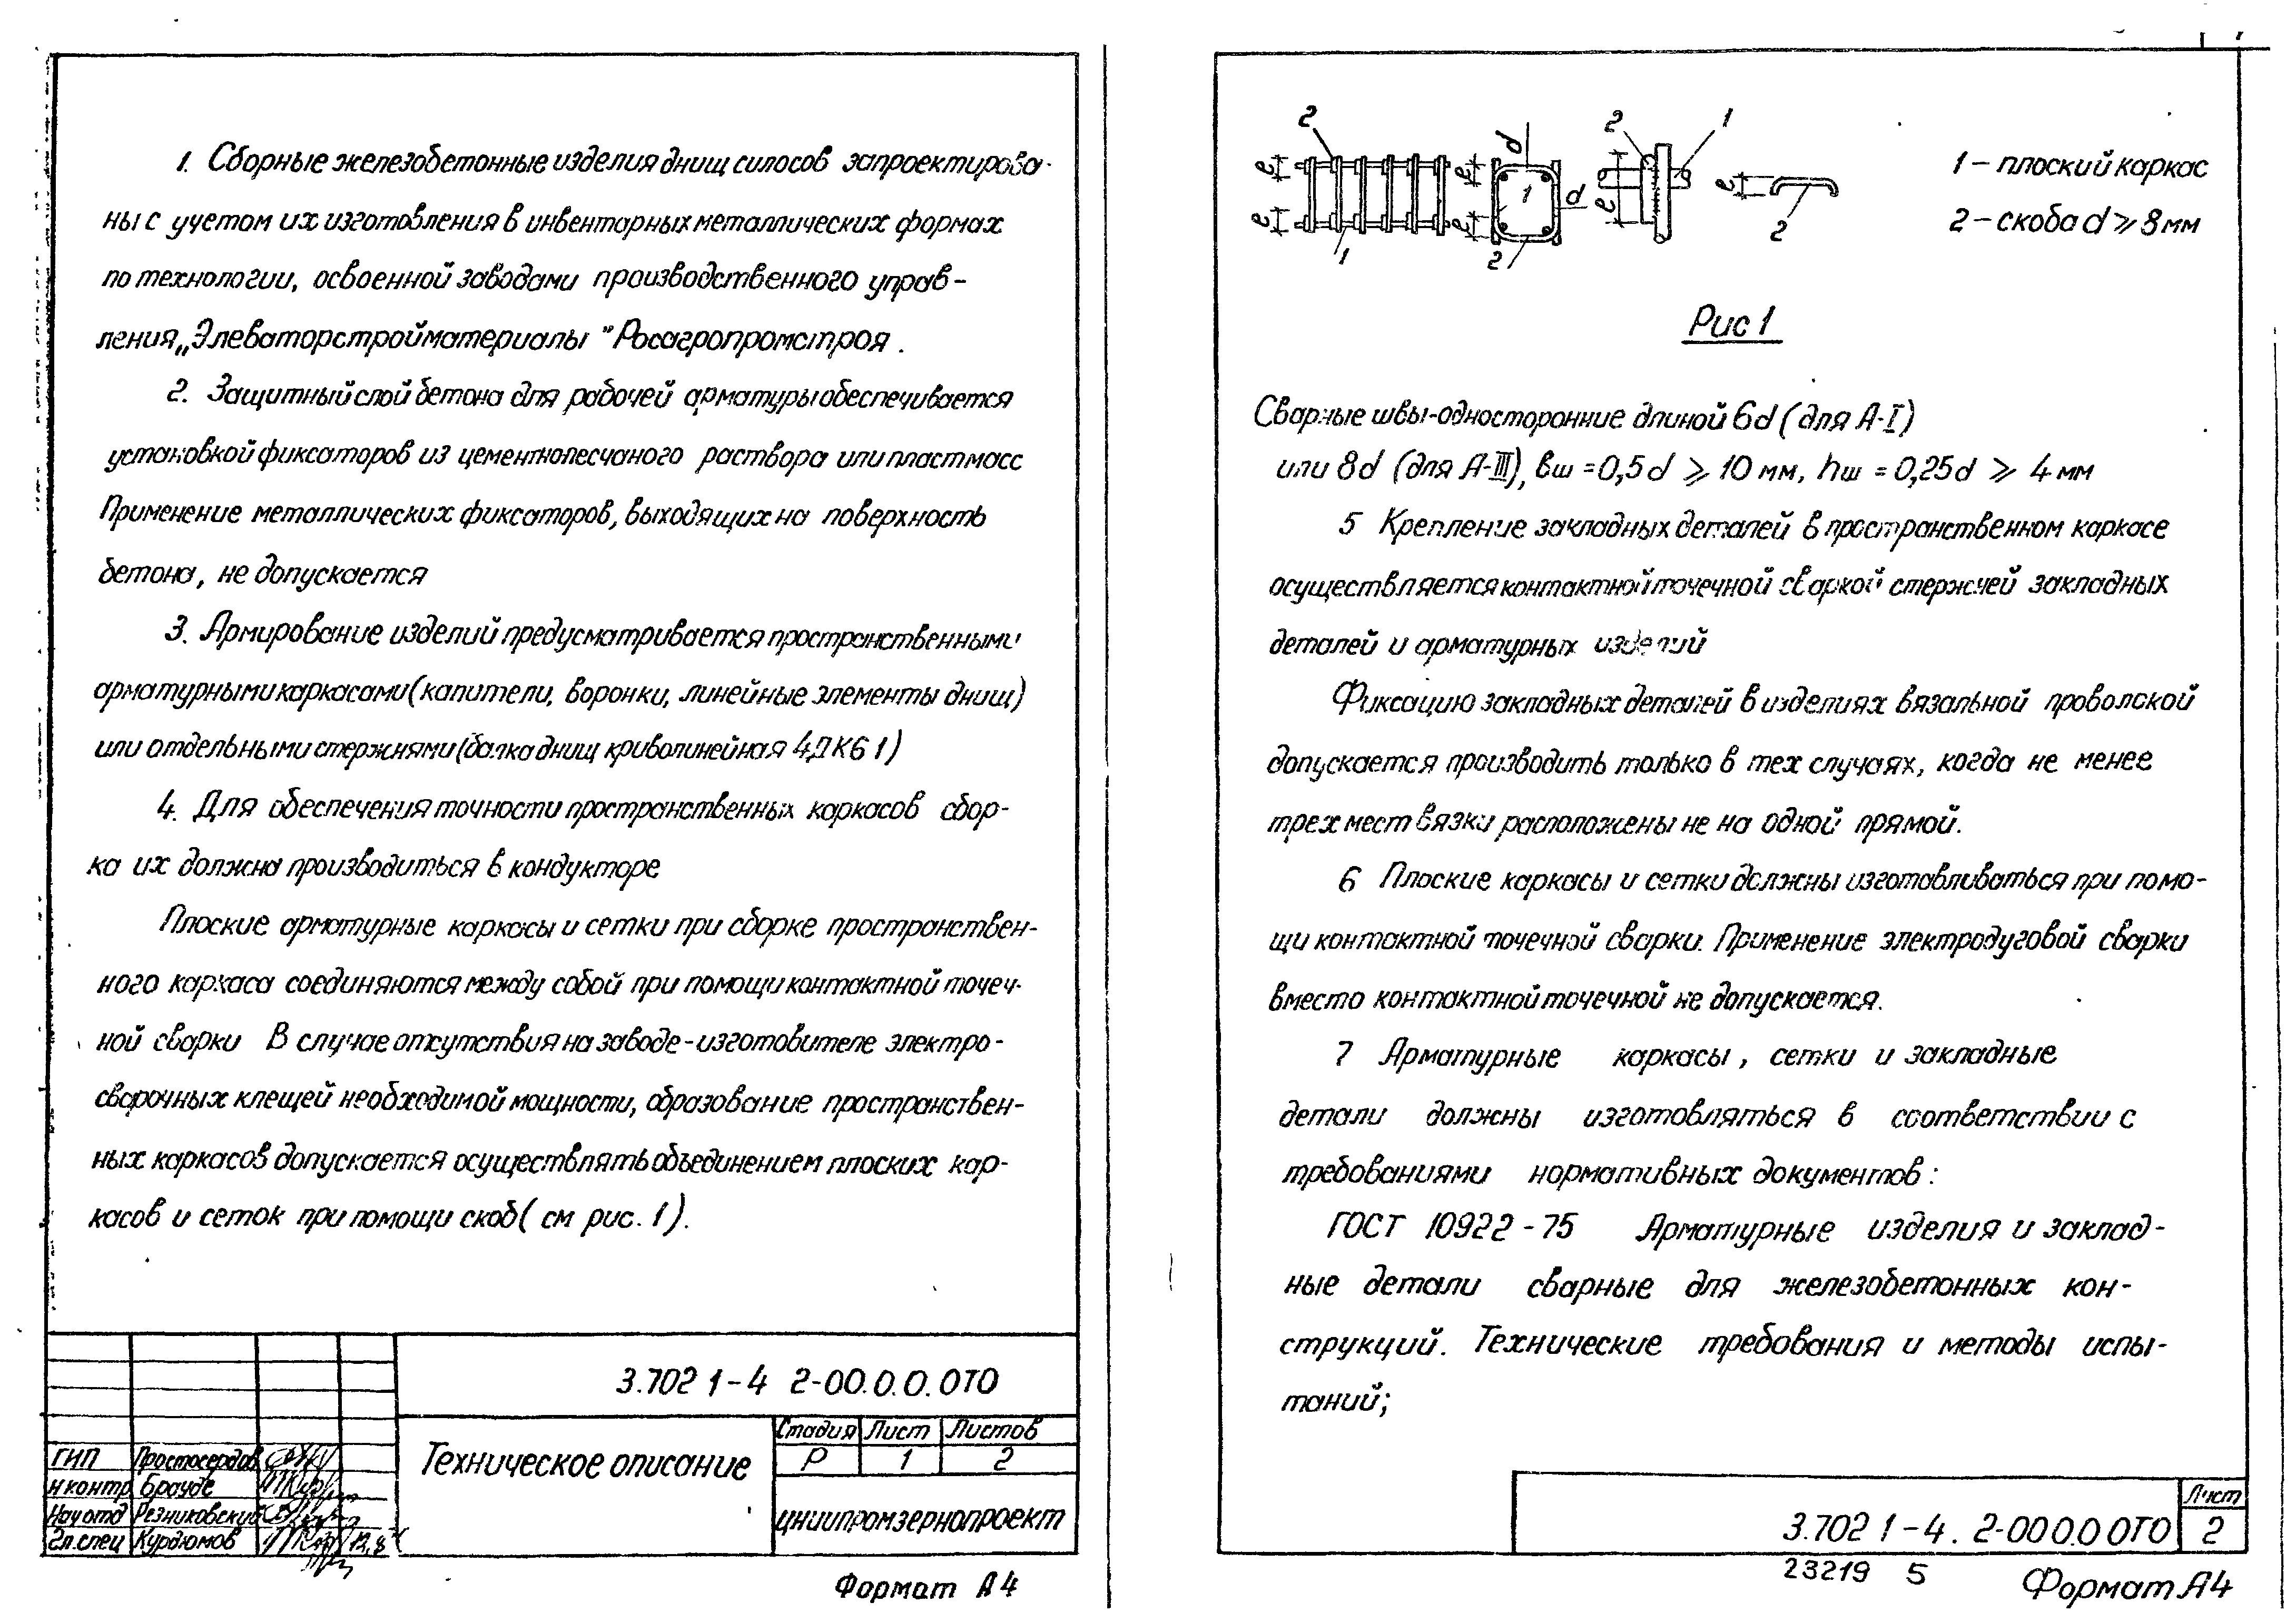 1. Сборные железобетонные изделия днищ силосов запроектирова-
ны с учетом их изготовления в инвентарных металлических формах
по технологии, освоенной заводами производственного управ-
ления „Элеваторстройматериалы" Росагропромстроя.
2. Защитный слой бетона для рабочей арматуры обеспечивается
установкой фиксаторов из цементнопесчаного раствора или пластмасс
Применение металлических фиксаторов, выходящих на поверхность
бетона, не допускается
3. Армирование изделий предусматривается пространственными
арматурными каркасами (капители, воронки, линейные элементы днищ)
или отдельными стержнями (балка днищ криволинейная 4ДК6 1)
4. Для обеспечения точности пространственных каркасов сбор-
ка их должна производиться в кондукторе
Плоские арматурные каркасы и сетки при сборке пространствен-
ного каркаса соединяются между собой при помощи контактной точеч-
ной сварки В случае отсутствия на заводе-изготовителе электро-
сварочных клещей необходимой мощности, образование пространствен-
ных каркасов допускается осуществлять объединением плоских кар-
касов и сеток при помощи скоб (см рис. 1).
3.702 1-4 2-00.0.0.0ТО
Техническое описание
Стадия Лист Листов
Р 1 2
ЦНИИПРОМЗЕРНОПРОЕКТ
ГИП Простосердов
Н контр Брауде
Нач отд Резниковский
Гл. спец Курдюмов
Формат А4
2 d 2 1
e e e e d e e
1 1 2 2
1 – плоский каркас
2 – скоба d ⩾ 8 мм
Рис 1
Сварные швы-односторонние длиной 6d (для А-I)
или 8d (для А-III), вш = 0,5d ⩾ 10 мм, hш = 0,25d ⩾ 4 мм
5 Крепление закладных деталей в пространственном каркасе
осуществляется контактной точечной сваркой стержней закладных
деталей и арматурных изделий
Фиксацию закладных деталей в изделиях вязальной проволокой
допускается производить только в тех случаях, когда не менее
трех мест вязки расположены не на одной прямой.
6 Плоские каркасы и сетки должны изготавливаться при помо-
щи контактной точечной сварки. Применение электродуговой сварки
вместо контактной точечной не допускается.
7 Арматурные каркасы, сетки и закладные
детали должны изготовляться в соответствии с
требованиями нормативных документов:
ГОСТ 10922-75 Арматурные изделия и заклад-
ные детали сварные для железобетонных кон-
струкций. Технические требования и методы испы-
таний;
3.702 1-4. 2-00 0.0 0ТО
Лист
2
23219 5
Формат А4